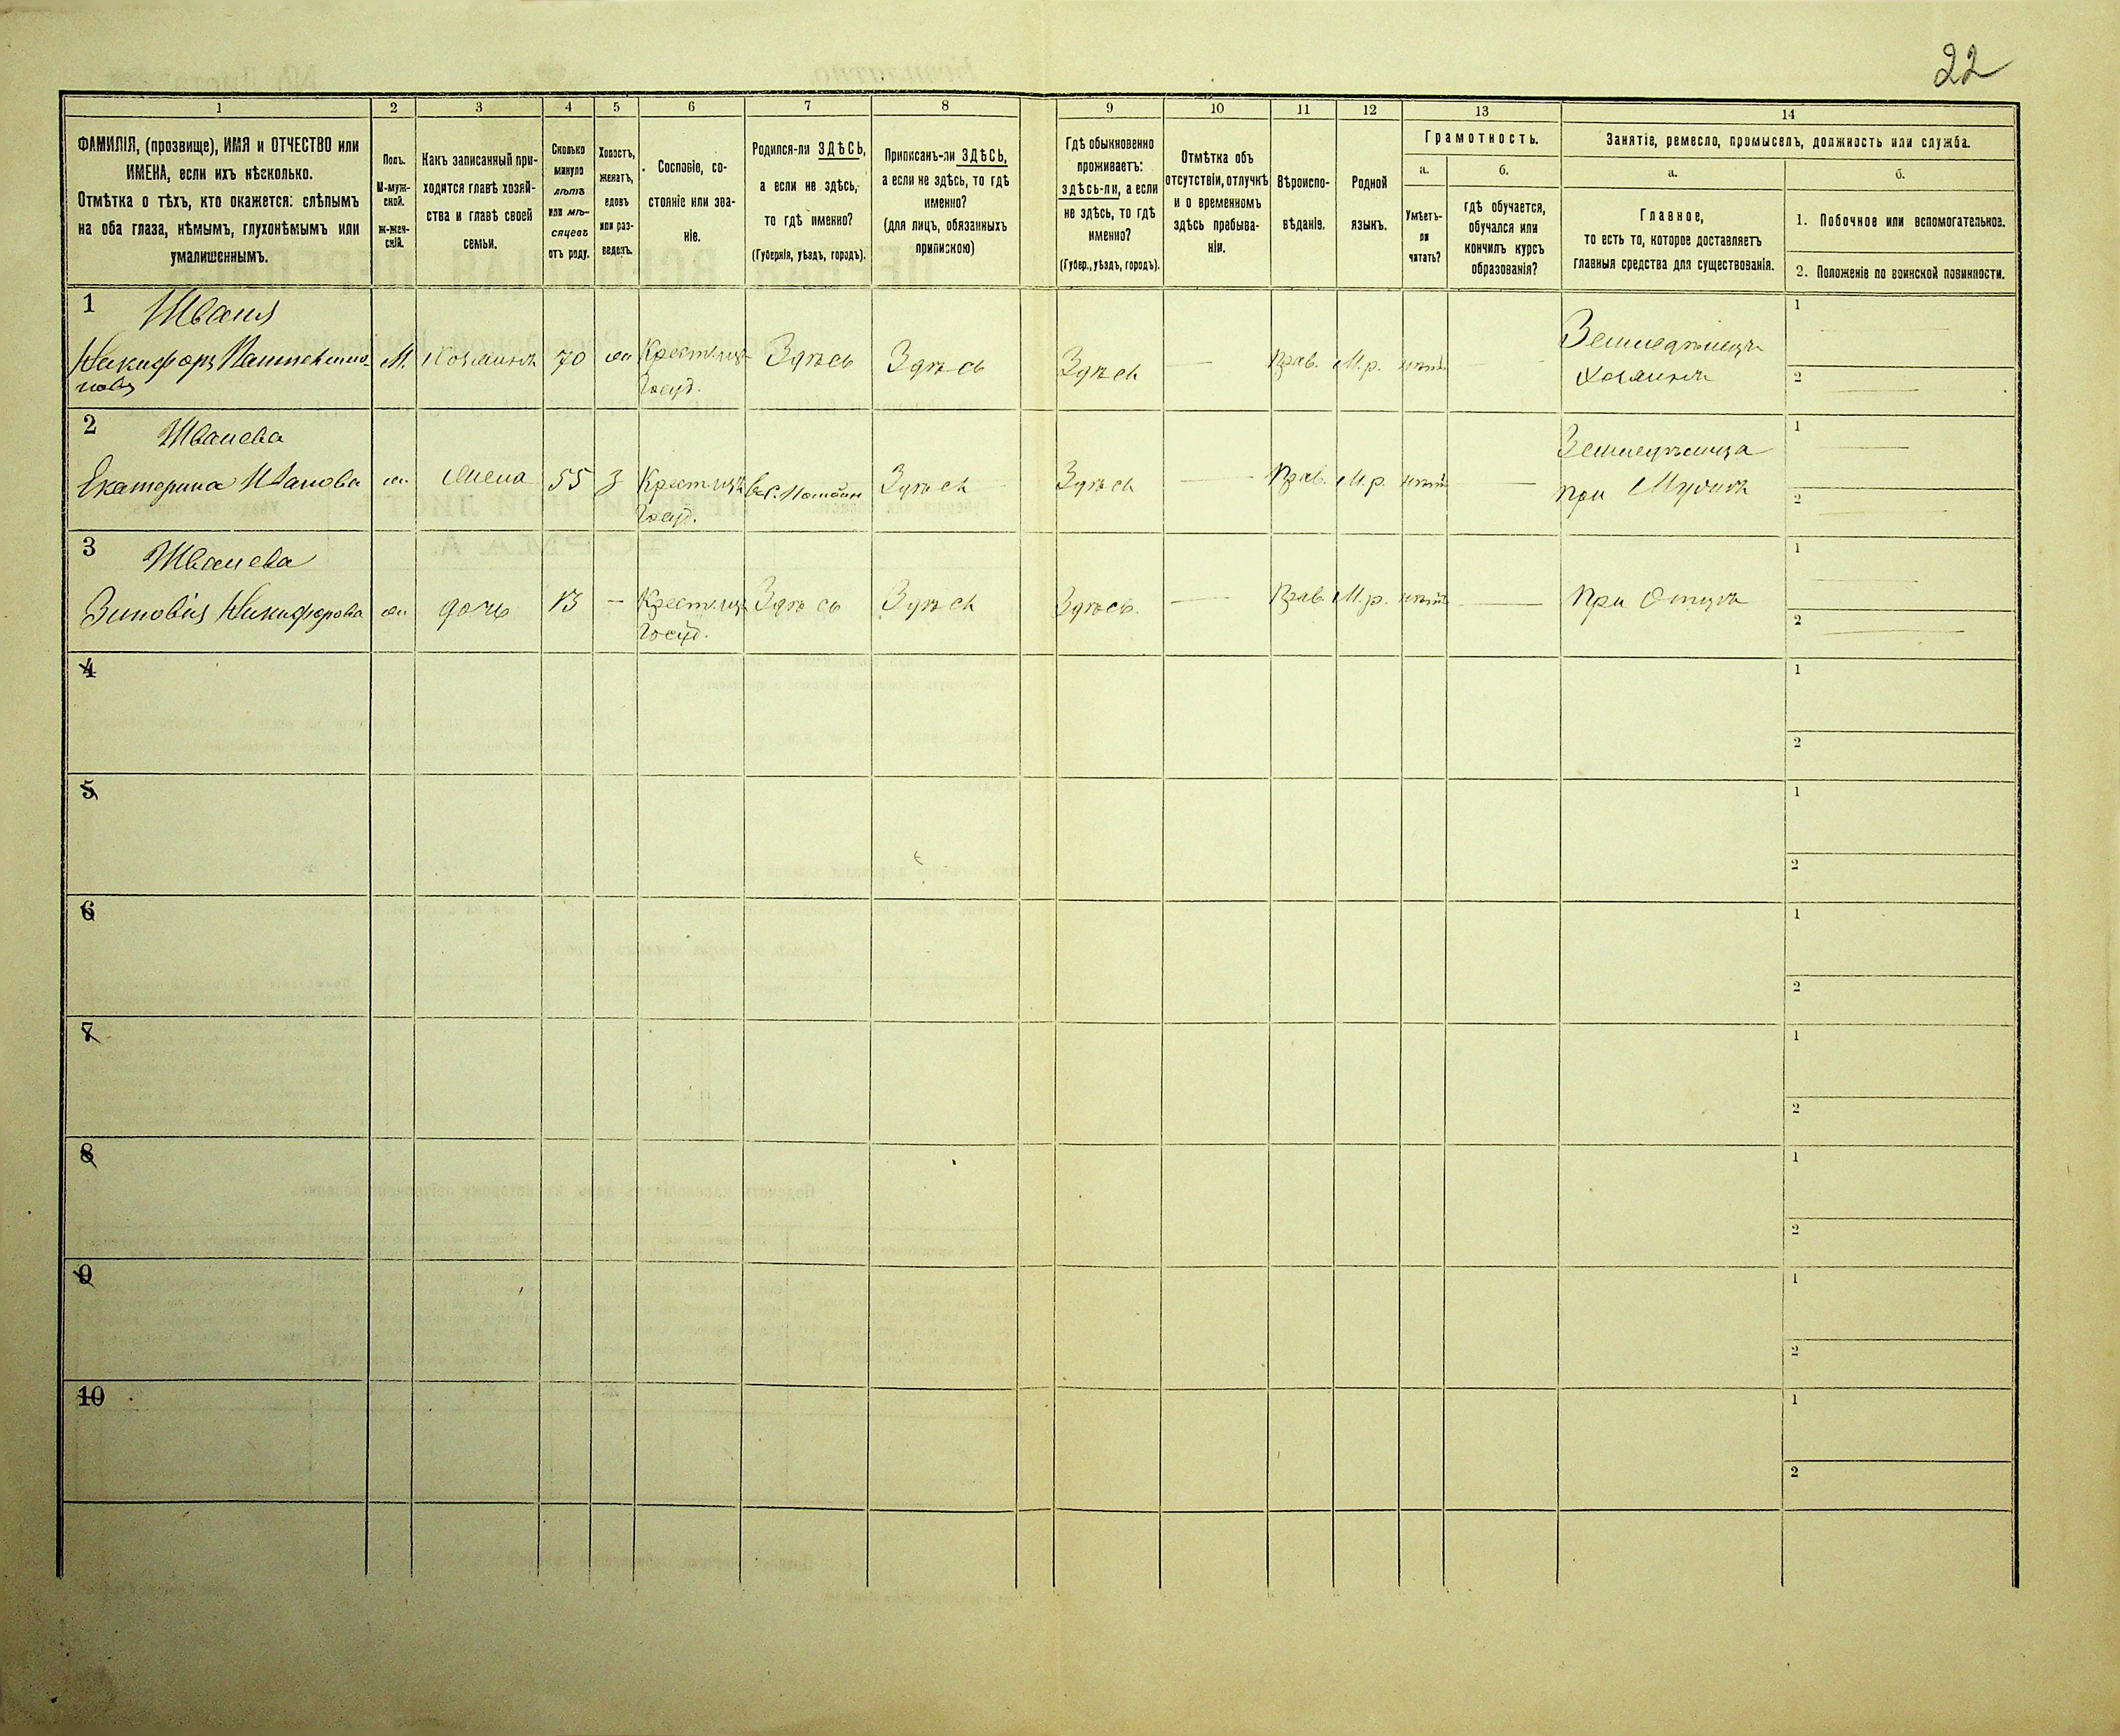 22
1 2 3 4 5 6 7 8 9 10 11 12 13 14
ФАМИЛІЯ, (прозвище), ИМЯ и ОТЧЕСТВО или
ИМЕНА, если ихъ нѣсколько.
Отмѣтка о тѣхъ, кто окажется: слѣпымъ
на оба глаза, нѣмымъ, глухонѣмымъ или
умалишеннымъ.
Полъ.
М-муж-
ской.
ж-жен-
скій.
Какъ записанный при-
ходится главѣ хозяй-
ства и главѣ своей
семьи.
Сколько
минуло
лѣтъ
или мѣ-
сяцевъ
отъ роду.
Холостъ,
женатъ,
вдовъ
или раз-
веденъ.
Сословіе, со-
стояніе или зва-
ніе.
Родился-ли ЗДѢСЬ,
а если не здѣсь,
то гдѣ именно?
(Губернія, уѣздъ, городъ).
Приписанъ-ли ЗДѢСЬ,
а если не здѣсь, то гдѣ
именно?
(для лицъ, обязанныхъ
припискою)
Гдѣ обыкновенно
проживаетъ:
здѣсь-ли, а если
не здѣсь, то гдѣ
именно?
(Губер., уѣздъ, городъ).
Отмѣтка объ
отсутствіи, отлучкѣ
и о временномъ
здѣсь пребыва-
ніи.
Вѣроиспо-
вѣданіе.
Родной
языкъ.
Грамотность.
а.
Умѣетъ-
ли
читать?
б.
гдѣ обучается,
обучался или
кончилъ курсъ
образованія?
Занятіе, ремесло, промыселъ, должность или служба.
а.
Главное,
то есть то, которое доставляетъ
главныя средства для существованія.
б.
1. Побочное или вспомогательное.
2. Положеніе по воинской повинности.
1
Никифоръ
М. 70 Здѣсь Здѣсь Здѣсь — Прав. М.р. нѣтъ —
Госуд.
1
2
2
Екатерина Иванова 55 З Здѣсь Здѣсь — Прав. М.р. нѣтъ —
Госуд.
при
1
2
3
Зиновія Никифорова дочь 13 — Здѣсь Здѣсь Здѣсь — Прав. М.р. нѣтъ — при Отцѣ
Госуд.
1
2
4
1
2
5
1
2
6
1
2
7
1
2
8
1
2
9
1
2
10
1
2